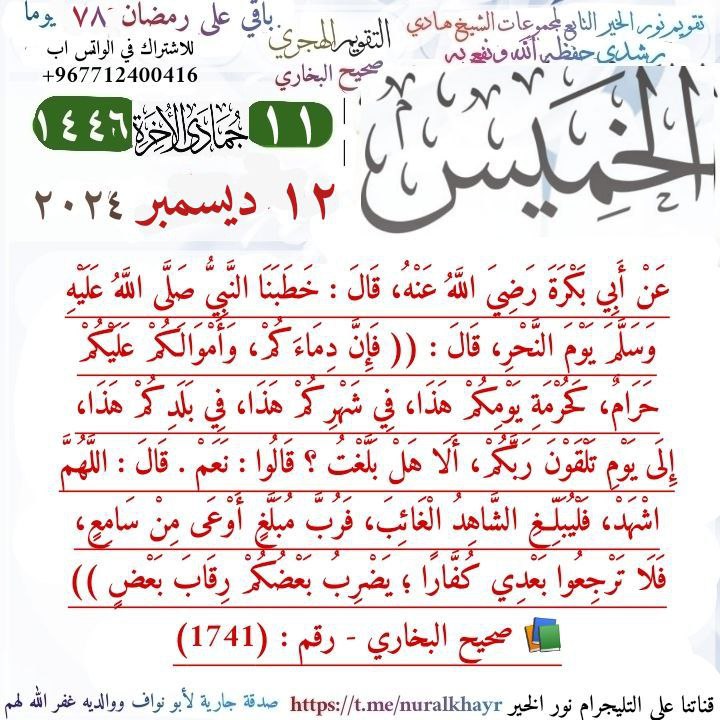 تقويم نور الخير التابع لمجموعات الشيخ هادي
رشدي حفظه الله ونفع به
التقويم الهجري
صحيح البخاري
باقي على رمضان ٧٨ يوما
للاشتراك في الواتس اب
+967712400416
الخميس
١١ جمادى الآخرة ١٤٤٦
١٢ ديسمبر ٢٠٢٤
عَنْ أَبِي بَكْرَةَ رَضِيَ اللَّهُ عَنْهُ، قَالَ : خَطَبَنَا النَّبِيُّ صَلَّى اللَّهُ عَلَيْهِ
وَسَلَّمَ يَوْمَ النَّحْرِ، قَالَ : (( فَإِنَّ دِمَاءَكُمْ، وَأَمْوَالَكُمْ عَلَيْكُمْ
حَرَامٌ، كَحُرْمَةِ يَوْمِكُمْ هَذَا، فِي شَهْرِكُمْ هَذَا، فِي بَلَدِكُمْ هَذَا،
إِلَى يَوْمِ تَلْقَوْنَ رَبَّكُمْ، أَلَا هَلْ بَلَّغْتُ ؟ قَالُوا : نَعَمْ . قَالَ : اللَّهُمَّ
اشْهَدْ، فَلْيُبَلِّغِ الشَّاهِدُ الْغَائِبَ، فَرُبَّ مُبَلَّغٍ أَوْعَى مِنْ سَامِعٍ،
فَلَا تَرْجِعُوا بَعْدِي كُفَّارًا ؛ يَضْرِبُ بَعْضُكُمْ رِقَابَ بَعْضٍ ))
صحيح البخاري - رقم : (1741)
قناتنا على التليجرام نور الخير https://t.me/nuralkhayr صدقة جارية لأبو نواف ووالديه غفر الله لهم